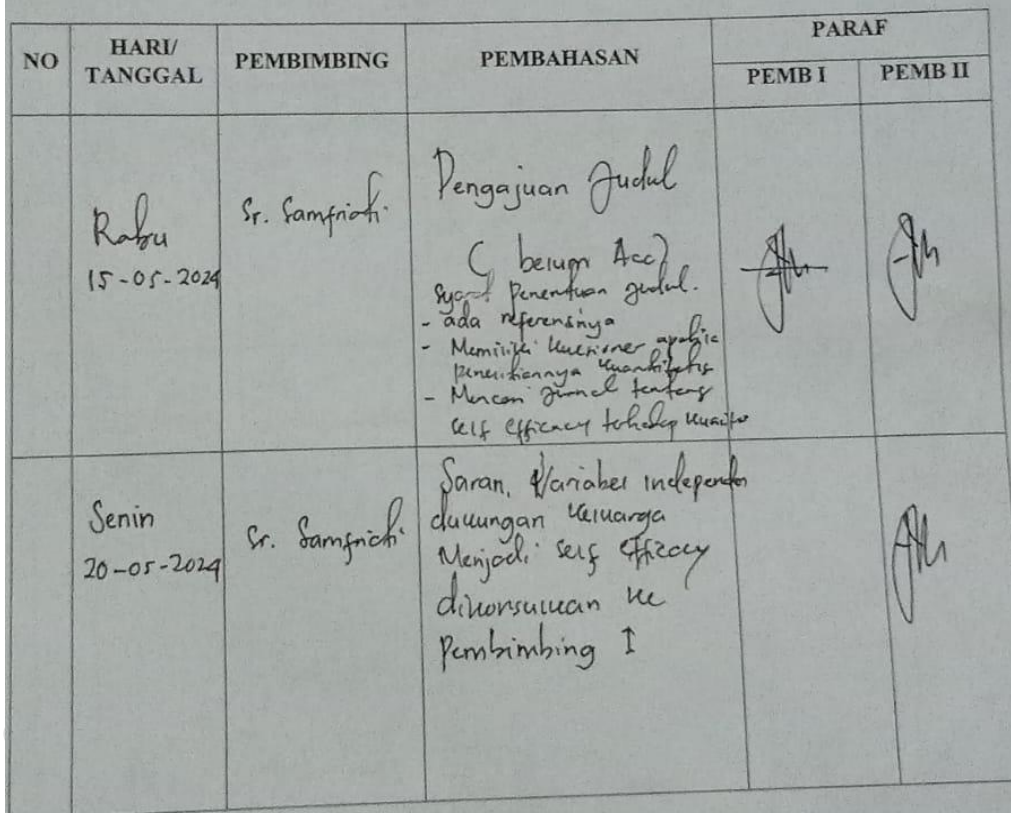 NO
HARI/
TANGGAL
PEMBIMBING
PEMBAHASAN
PARAF
PEMB I
PEMB II
Rabu
15-05-2024
Sr. Samfriati
Pengajuan Judul
( belum Acc)
Syarat Penentuan Judul.
- ada referensinya
- Memiliki kuesioner apabila
penelitiannya kuantitatif
- Mencari Jurnal tentang
self efficacy terhadap
Senin
20-05-2024
Sr. Samfriati
Saran, Variabel independen
dukungan keluarga
Menjadi self efficacy
dikonsulkan ke
Pembimbing I